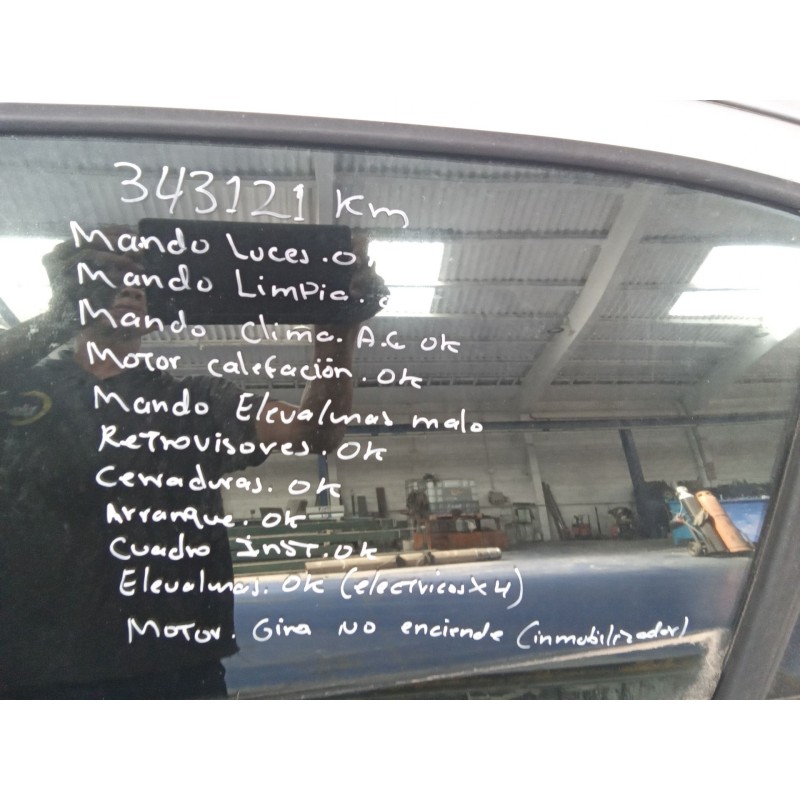 343121 Km
Mando Luces. OK
Mando Limpia.
Mando Clima. A.C OK
Motor calefación. OK
Mando Elevalunas malo
Retrovisores. OK
Cerraduras. OK
Arranque. OK
Cuadro Inst. OK
Elevalunas. OK (electricos x 4)
Motor. Gira NO enciende (inmobilizador)